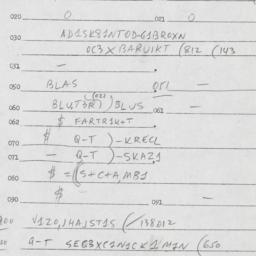 020 0 021 0
030 AD1SK81NTOD-G1BROXN
OC3XBARUIKT (812 (143
031 —
050 BLAS 051 —
060 BLUT3R)(021))BLUS 061 —
062 $ FARTR1K+T
070 $ Q-T)-KRECL
071 — Q-T)-SKAZ1
080 $ =((S+C+A,MB1
090 $ — 091 —
V120,14A,ST1S (/138D12
Q-T SEG3XC1N1CK1'M1N (650